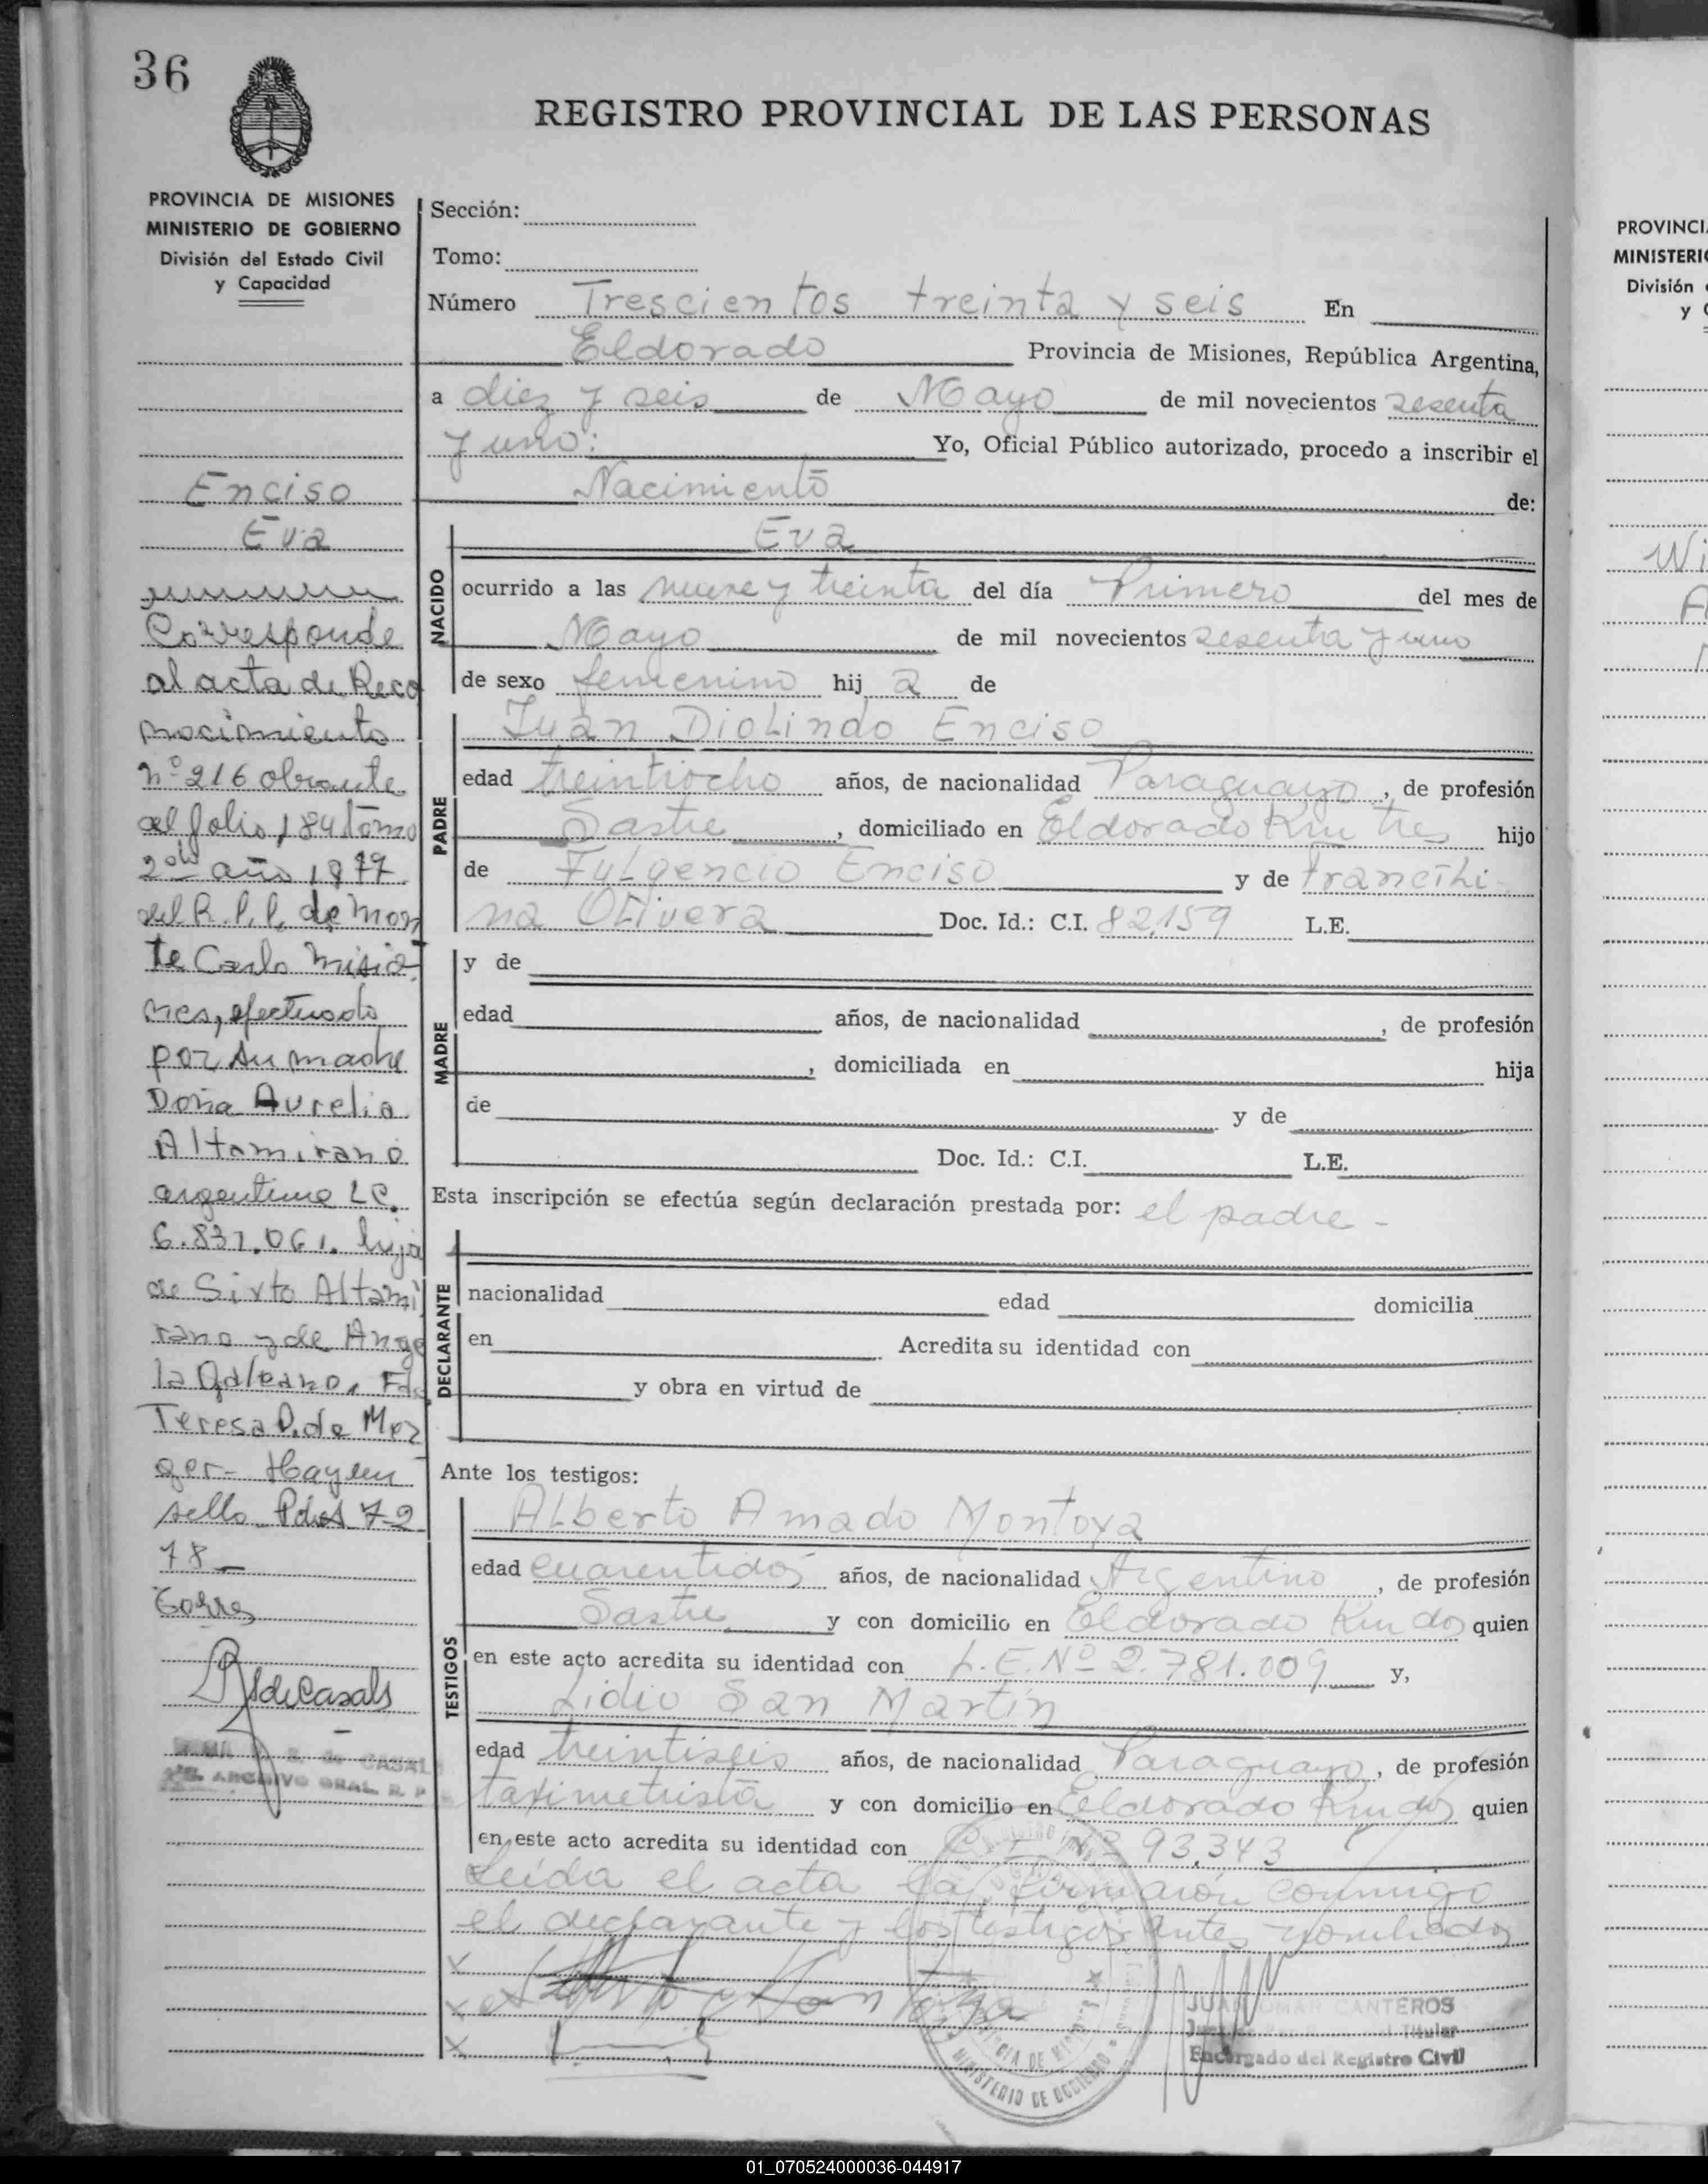 36
REGISTRO PROVINCIAL DE LAS PERSONAS
PROVINCIA DE MISIONES
MINISTERIO DE GOBIERNO
División del Estado Civil
y Capacidad
Enciso
Eva
Corresponde
al acta de Reco
nocimiento
nº 216 obrante
al folio 184 tomo
2do año 1977
del R.P.P. de Mon
te Carlo Misio-
nes, efectuado
por su madre
Doña Aurelia
Altamirano
argentina LC.
6.831.061. hija
de Sixto Altami
rano y de Ange
la Galeano. Fdo
Teresa P. de Mez
ger- Hay un
sello Pdas 7-2
78-
Torres
RdeCasals
R. de CASAL
ARCHIVO GRAL. R. P.
Sección:
Tomo:
Número Trescientos treinta y seis En
Eldorado Provincia de Misiones, República Argentina,
a diez y seis de Mayo de mil novecientos sesenta
y uno: Yo, Oficial Público autorizado, procedo a inscribir el
Nacimiento de:
NACIDO
Eva
ocurrido a las nueve y treinta del día Primero del mes de
Mayo de mil novecientos sesenta y uno
de sexo femenino hij a de
PADRE
Juan Diolindo Enciso
edad treintiocho años, de nacionalidad Paraguayo, de profesión
Sastre, domiciliado en Eldorado Km tres hijo
de Fulgencio Enciso y de Francihi-
na Olivera Doc. Id.: C.I. 82,159 L.E.
MADRE
y de
edad años, de nacionalidad , de profesión
, domiciliada en hija
de y de
Doc. Id.: C.I. L.E.
Esta inscripción se efectúa según declaración prestada por: el padre -
DECLARANTE
nacionalidad edad domicilia
en Acredita su identidad con
y obra en virtud de
Ante los testigos:
TESTIGOS
Alberto Amado Montoya
edad cuarentidos años, de nacionalidad Argentino, de profesión
Sastre y con domicilio en Eldorado Km dos quien
en este acto acredita su identidad con L.E. Nº 2.781.009 y,
Lidio San Martín
edad treintiseis años, de nacionalidad Paraguayo, de profesión
taximetrista y con domicilio en Eldorado Km dos quien
en este acto acredita su identidad con C.I. Nº 93,343
Leída el acta la firmaron conmigo
el declarante y los testigos antes nombrados
JUAN OMAR CANTEROS
Titular
Encargado del Registro Civil
MINISTERIO DE GOBIERNO
PROVINCI
MINISTERI
División
y
Wi
01_070524000036-044917